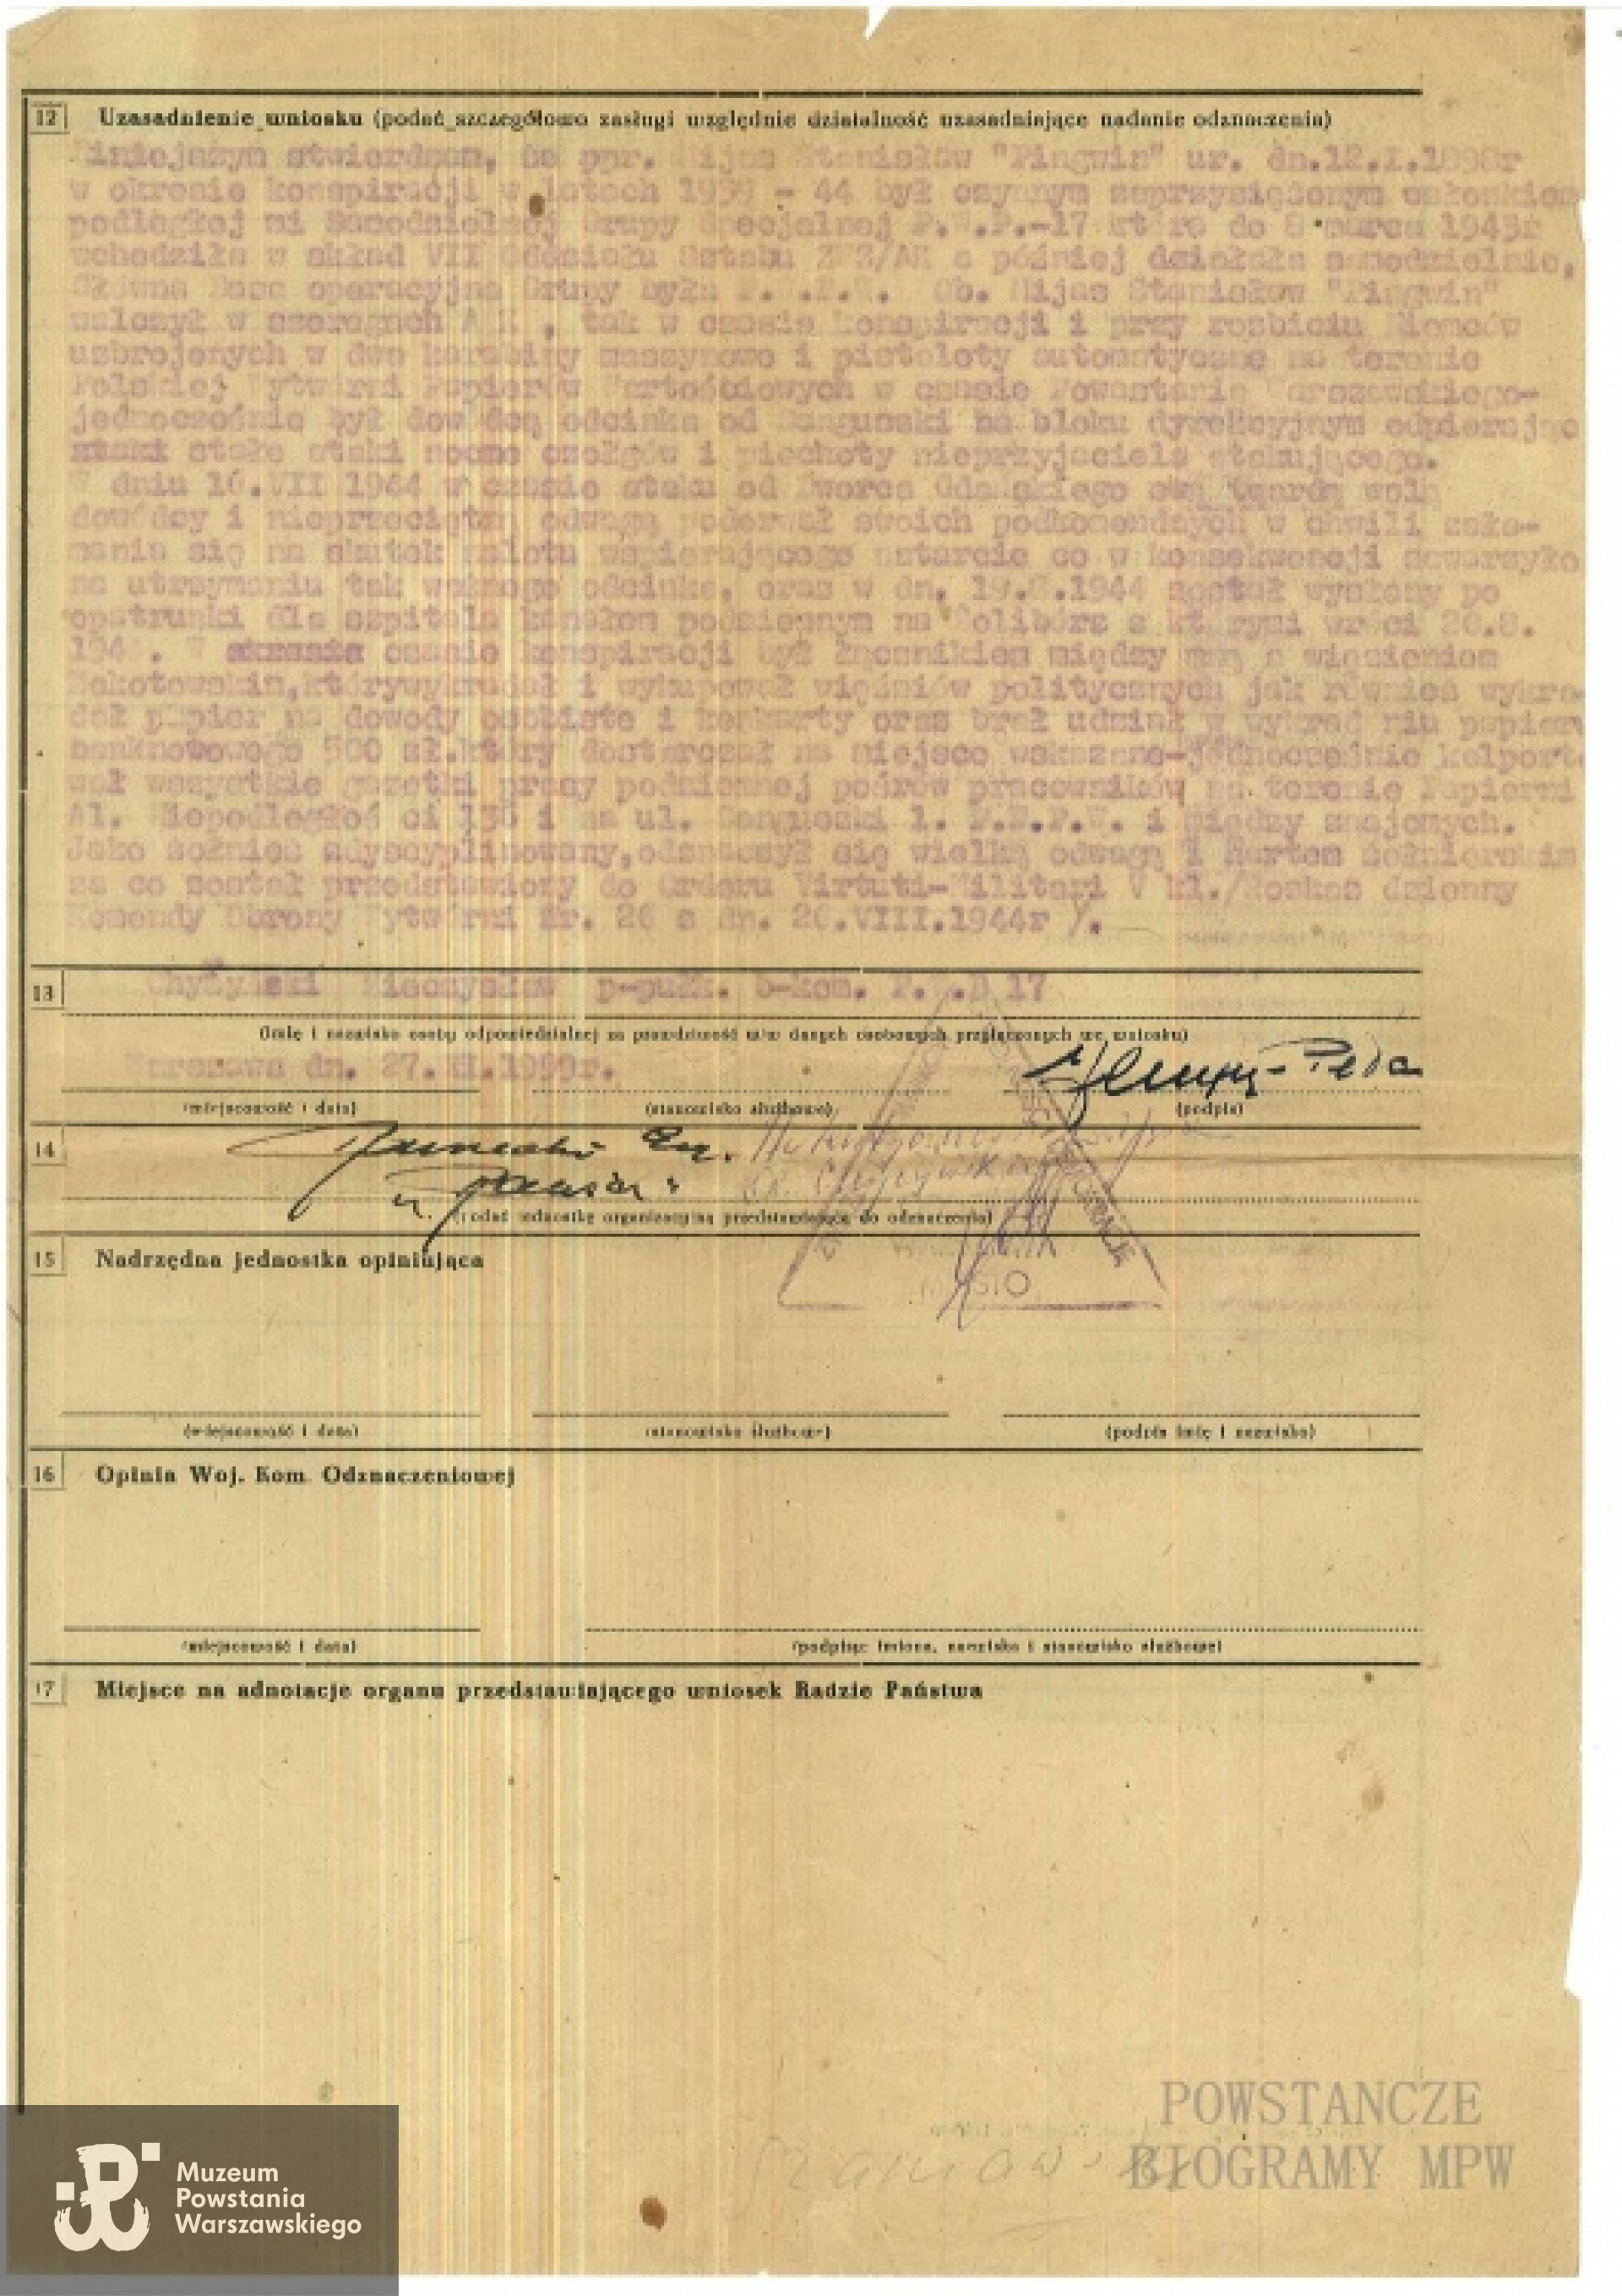 12 Uzasadnienie wniosku (podać szczegółowo zasługi względnie działalność uzasadniające nadanie odznaczenia)
Niniejszym stwierdzam, że ppr. Mijas Stanisław "Pingwin" ur. dn.12.I.1898r
w okresie konspiracji w latach 1939 - 44 był czynnym zaprzysiężonym członkiem
podległej mi Samodzielnej Grupy Specjalnej P.W.P.-17 która do 8 marca 1943r
wchodziła w skład VII Oddziału Sztabu ZWZ/AK a później działała samodzielnie,
Główna Baza operacyjna Grupy była P.W.P.W. Ob. Mijas Stanisław "Pingwin"
walczył w szeregach A K , tak w czasie konspiracji i przy rozbiciu Niemców
uzbrojonych w dwa karabiny maszynowe i pistolety automatyczne na terenie
Polskiej Wytwórni Papierów Wartościowych w czasie Powstania Warszawskiego-
jednocześnie był dowódcą odcinka od Sanguszki na bloku dyrekcyjnym odpierając
ataki stałe ataki nocne czołgów i piechoty nieprzyjaciela atakującego.
W dniu 16.VII 1944 w czasie ataku od Dworca Gdańskiego swą twardą wolą
dowódcy i nieprzeciętną odwagą poderwał swoich podkomendnych w chwili zała-
mania się na skutek nalotu wspierającego natarcie co w konsekwencji zaważyło
na utrzymaniu tak ważnego odcinka, oraz w dn. 19.8.1944 został wysłany po
opatrunki dla szpitala kanałem podziemnym na Żolibórz z którymi wrócił 20.8.
194 . W okresie czasie konspiracji był łącznikiem między mną a więzieniem
Mokotowskim,którywykradał i wykupował więźniów politycznych jak również wykra-
dał papier na dowody osobiste i kenkarty oraz brał udział w wykradaniu papieru
banknotowego 500 zł.który dostarczał na miejsce wskazane-jednocześnie kolporto
wał wszystkie gazetki prasy podziemnej pośrów pracowników na terenie Papierni
Al. Niepodległości 138 i na ul. Sanguszki 1. P.W.P.W. i między znajomych.
Jako żołnierz zdyscyplinowany,odznaczył się wielką odwagą i hartem żołnierskim
za co został przedstawiony do Orderu Virtuti-Militari V kl./Rozkaz dzienny
Komendy Obrony Wytwórni Nr. 26 z dn. 26.VIII.1944r /.
13 Chyżyński Mieczysław p-pułk. b-kom. P.W.P 17
(Imię i nazwisko osoby odpowiedzialnej za prawdziwość w/w danych osobowych przytaczonych we wniosku)
Warszawa dn. 27.XI.1959r.
(miejscowość i data) (stanowisko służbowe) (podpis)
14
(Podać jednostkę organizacyjną przedstawiającą do odznaczenia)
15 Nadrzędna jednostka opiniująca
(miejscowość i data) (stanowisko służbowe) (podpis imię i nazwisko)
16 Opinia Woj. Kom. Odznaczeniowej
(miejscowość i data) (podpisy imiona, nazwiska i stanowisko służbowe)
17 Miejsce na adnotacje organu przedstawiającego wniosek Radzie Państwa
POWSTANCZE
BIOGRAMY MPW
Muzeum
Powstania
Warszawskiego